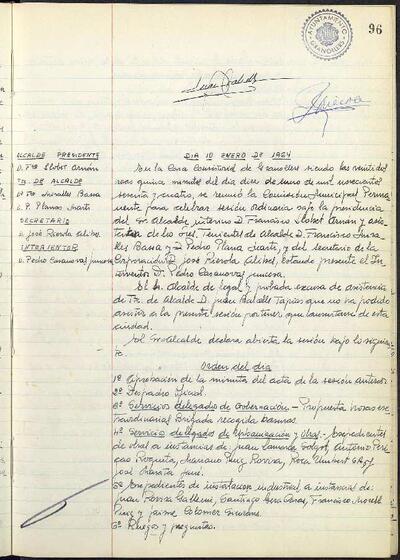 AYUNTAMIENTO
GRANOLLERS
96
ALCALDE PRESIDENTE
D. Fco Llobet Arnán
TTE. DE ALCALDE
D. Fco Bassa
D. P. Planas
SECRETARIO
D. José Rierola Alibes
INTERVENTOR
D. Pedro Casanovas
DIA 10 ENERO DE 1964
En la Casa Consistorial de Granollers siendo las veintidos
horas quince minutos del día diez de enero de mil novecientos
sesenta y cuatro, se reunió la Comisión Municipal Perma
nente para celebrar sesión ordinaria bajo la presidencia
del Sr. Alcalde interino D. Francisco Llobet Arnán y asis
tencia de los Sres. Tenientes de Alcalde D. Francisco
Bassa y D. Pedro Plana y del secretario de la
Corporación D. José Rierola Alibes, estando presente el In
terventor D. Pedro Casanovas
El Alcalde de legal y probada excusa de asistencia
de Tte. de Alcalde D. Juan Tapias que no ha podido
asistir a la presente sesión por tener que ausentarse de esta
ciudad.
Sr. Alcalde declara abierta la sesión bajo la siguien
te
Orden del día
1º Aprobación de la minuta del acta de la sesión anterior
2º Despacho oficial.
3º Servicios delegados de Gobernación.- Propuesta horas ex
traordinarias Brigada recogida basuras.
4º Servicio delegado de Urbanización y Obras.- Expedientes
de obras a instancias de: Juan Antonio
Mariano Puig Rovira, Rosa Umbert
José
5º Expedientes de instalación industrial, a instancia de:
Juan Rovira Santiago Francisco
Puig y Jaime Colomer
6º Ruegos y preguntas.